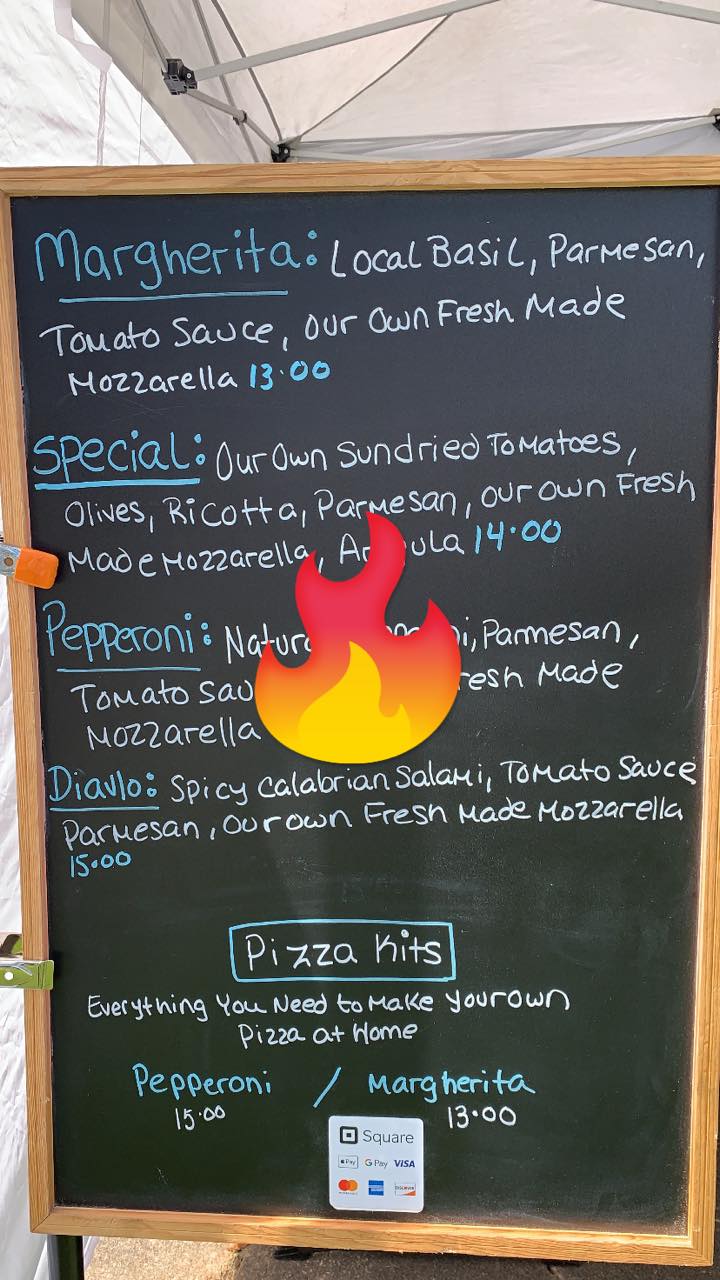 Margherita: Local Basil, Parmesan,
Tomato Sauce, Our Own Fresh Made
Mozzarella 13.00
Special: Our Own Sundried Tomatoes,
Olives, Ricotta, Parmesan, Our own Fresh
Made Mozzarella, 14.00
Pepperoni: Parmesan,
Tomato Made
Mozzarella
Diavlo: Spicy Calabrian Salami, Tomato Sauce
Parmesan, Our own Fresh Made Mozzarella
15.00
Pizza Kits
Everything You Need to Make your own
Pizza at Home
Pepperoni / Margherita
15.00 13.00
Square
Pay G Pay VISA
DISCOVER